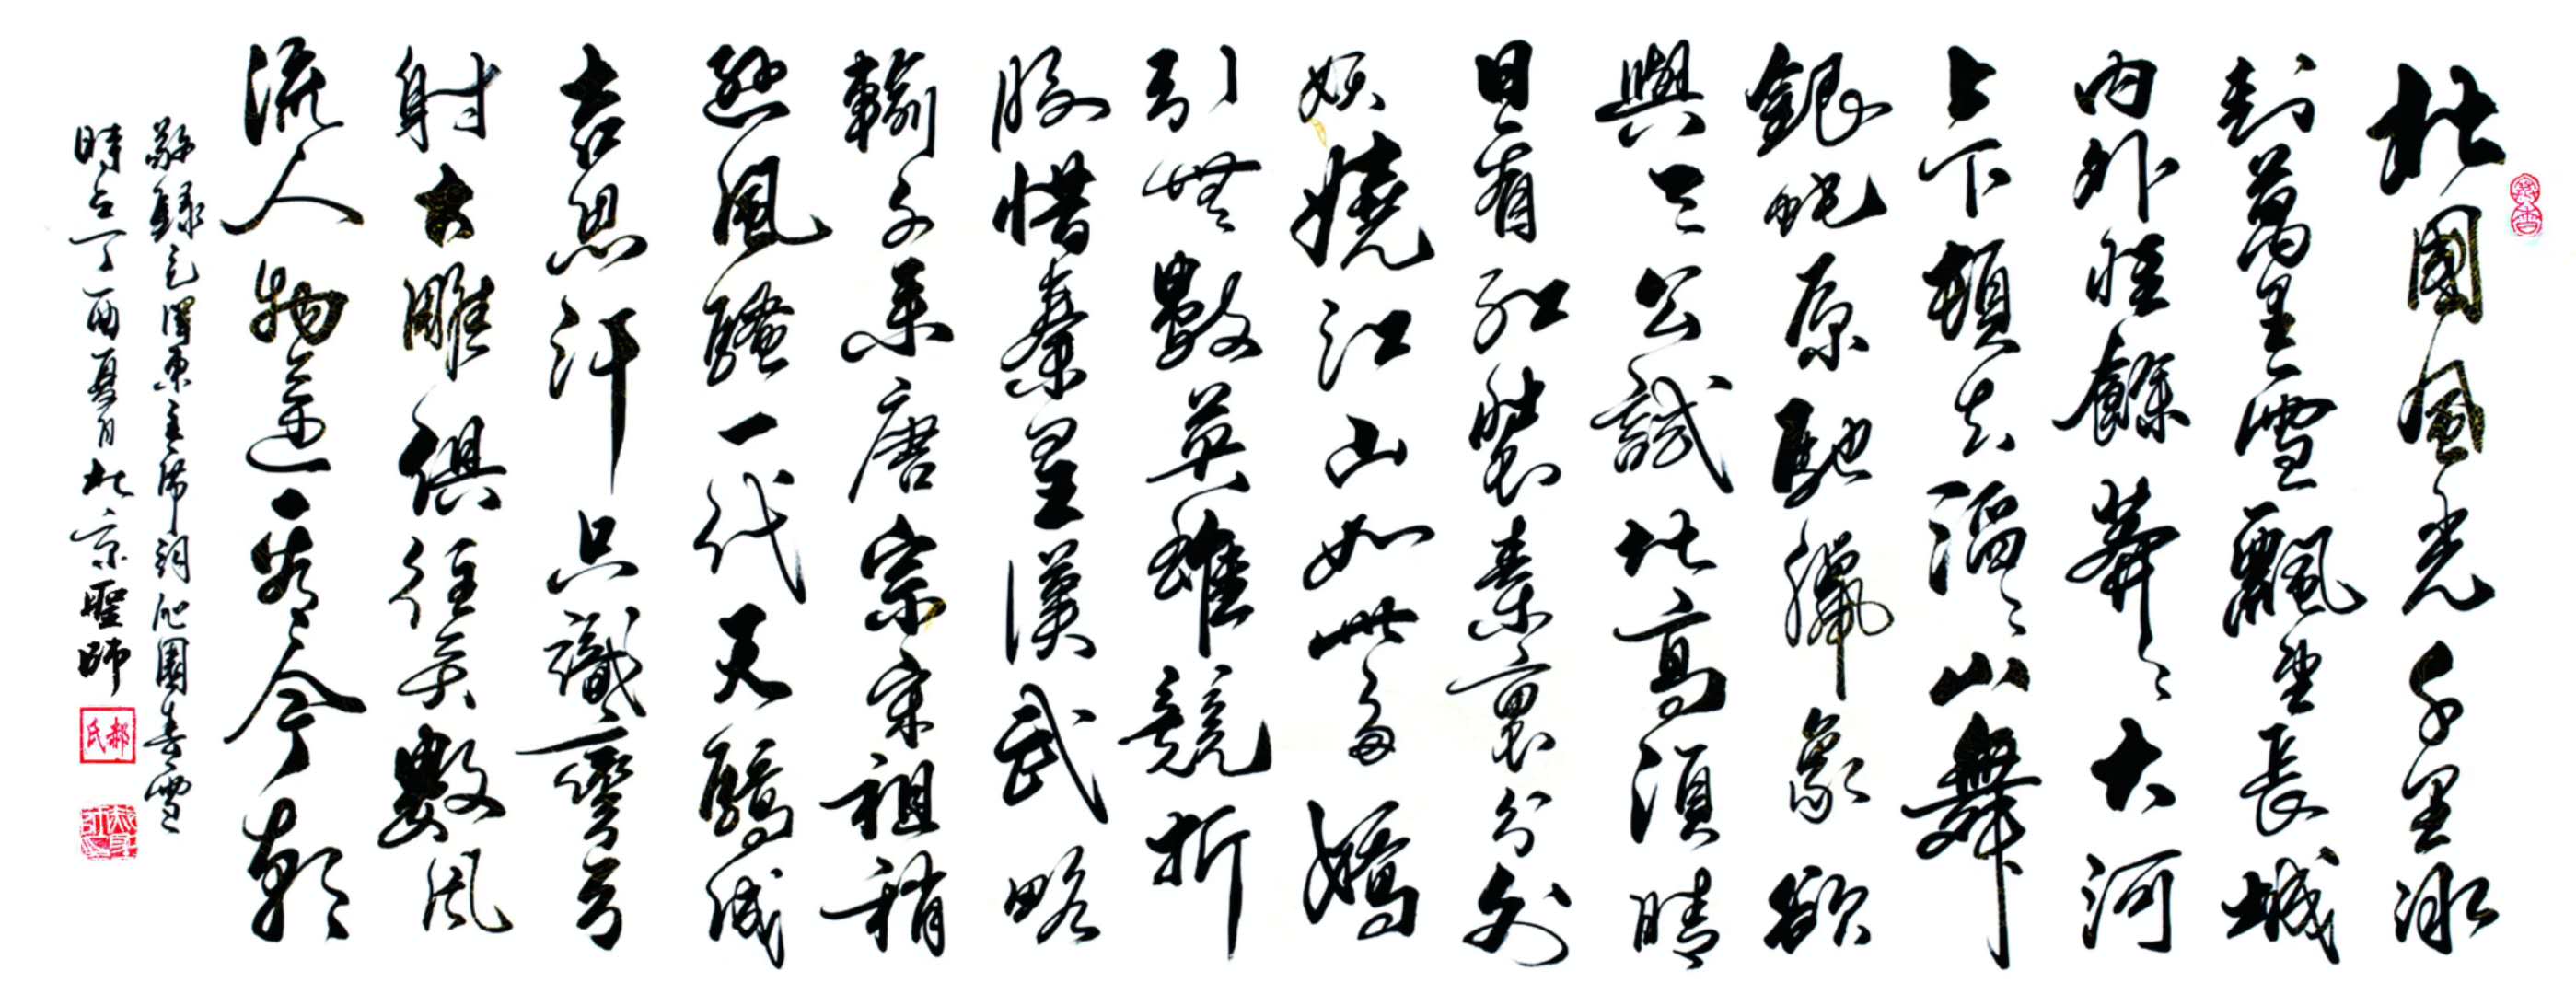 北國風光千里冰
封萬里雪飄望長城
內外惟餘莽〻大河
上下頓失滔〻山舞
銀蛇原馳臘象欲
與天公試比高須晴
日看紅裝素裹分外
妖嬈江山如此多嬌
引無數英雄競折
腰惜秦皇漢武略
輸文采唐宗宋祖稍
遜風騷一代天驕成
吉思汗只識彎弓
射大雕俱往矣數風
流人物還看今朝
敬錄毛澤東主席詞沁園春雪
時在丁酉夏月北京聖師
郝氏